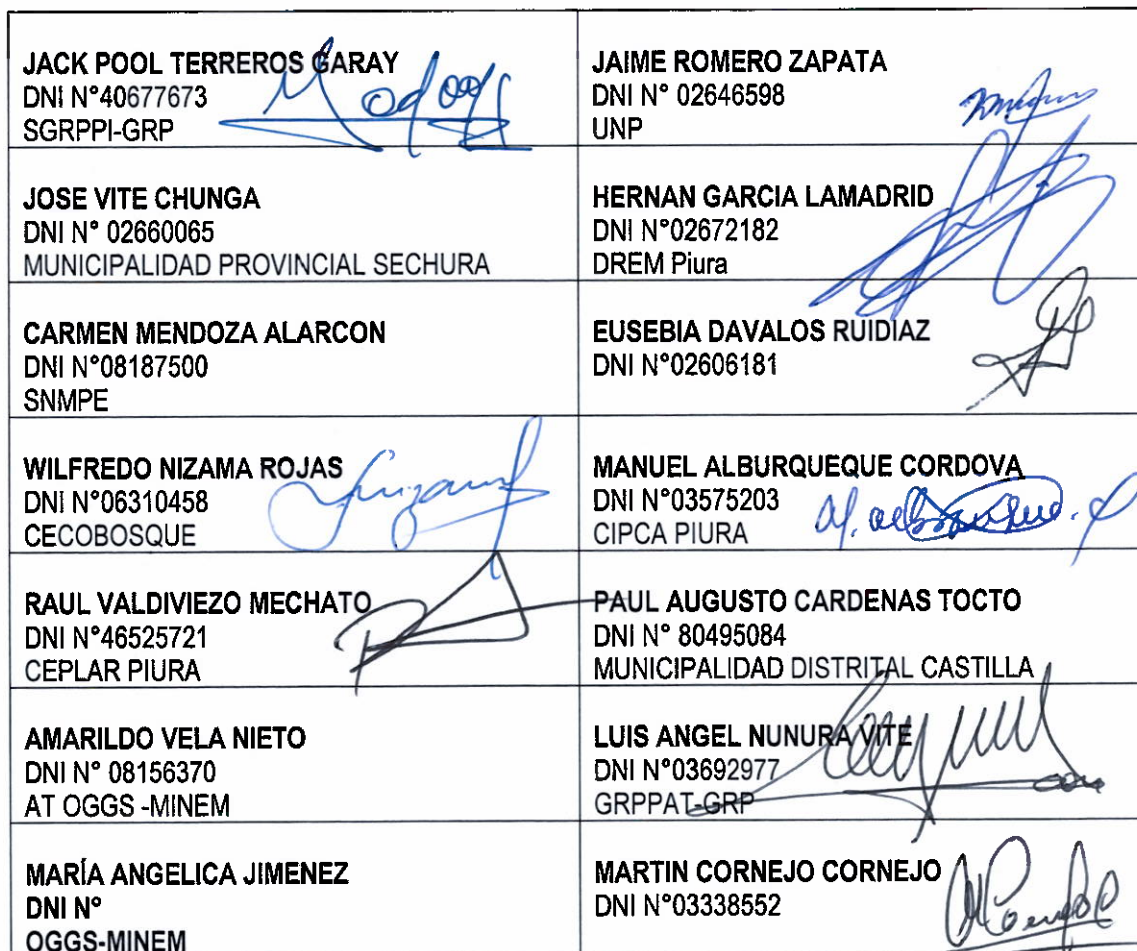 JACK POOL TERREROS GARAY
DNI N°40677673
SGRPPI-GRP
JAIME ROMERO ZAPATA
DNI N° 02646598
UNP
JOSE VITE CHUNGA
DNI N° 02660065
MUNICIPALIDAD PROVINCIAL SECHURA
HERNAN GARCIA LAMADRID
DNI N°02672182
DREM Piura
CARMEN MENDOZA ALARCON
DNI N°08187500
SNMPE
EUSEBIA DAVALOS RUIDIAZ
DNI N°02606181
WILFREDO NIZAMA ROJAS
DNI N°06310458
CECOBOSQUE
MANUEL ALBURQUEQUE CORDOVA
DNI N°03575203
CIPCA PIURA
RAUL VALDIVIEZO MECHATO
DNI N°46525721
CEPLAR PIURA
PAUL AUGUSTO CARDENAS TOCTO
DNI N° 80495084
MUNICIPALIDAD DISTRITAL CASTILLA
AMARILDO VELA NIETO
DNI N° 08156370
AT OGGS -MINEM
LUIS ANGEL NUNURA VITE
DNI N°03692977
GRPPAT-GRP
MARÍA ANGELICA JIMENEZ
DNI N°
OGGS-MINEM
MARTIN CORNEJO CORNEJO
DNI N°03338552